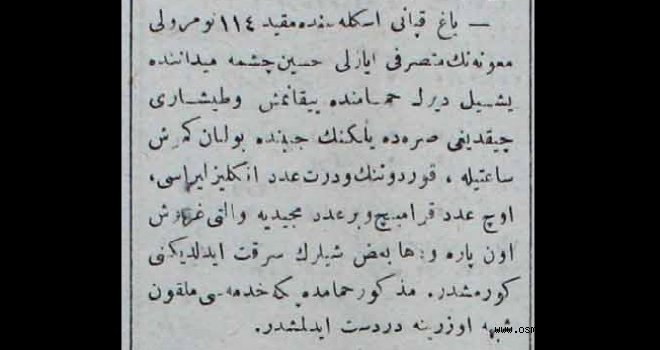 — باغ قپانی اسكله‌سنده مقید ١١٤ نومرولی
معونه‌نك متصرفی ایازلی حسین چشمه میداننده
یشیل دیرك حمامنده ییقانمش و طیشاری
چیقدیغی صره‌ده یلكنك جیبنده بولنان كموش
ساعتیله ، قوردوننك و درت عدد انكلیز لیراسی،
اوچ عدد قرامیچ و بر عدد مجیدیه و التی غروش
اون پاره و دها بعض شیلرك سرقت ایدلدیكنی
كورمشدر. مذكور حمامده كه خدمه‌سی ملقون
شبهه اوزرینه دردست ایدلمشدر.
www.osm